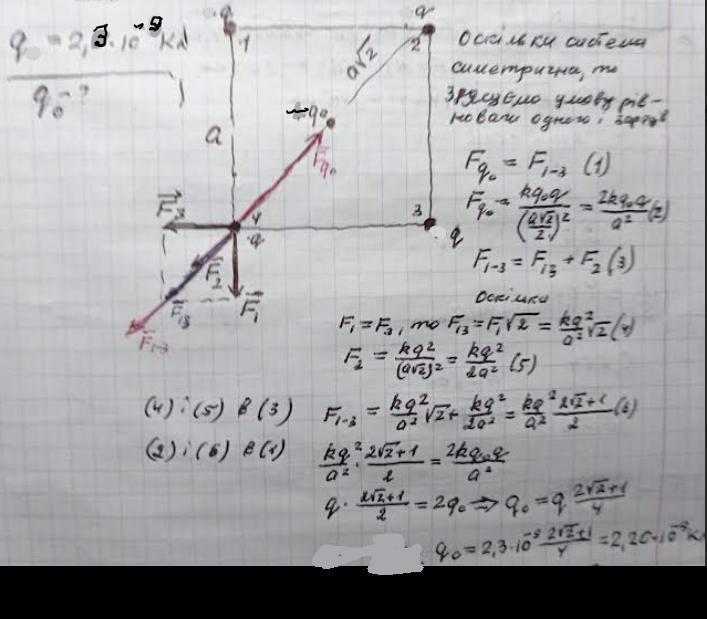 q = 2,3·10⁻⁹ Кл
q₀ - ?
q
1
q
2
a√2
a
-q₀
F⃗q₀
F⃗₃
4
q
3
q
F⃗₂
F⃗₁₃
F⃗₁
F⃗₁₋₃
Оскільки система
симетрична, то
умову рів-
новаги одного і зарядів
Fq₀ = F₁₋₃ (1)
Fq₀ = kq₀q/(a√2/2)² = 2kq₀q/a² (2)
F₁₋₃ = F₁₃ + F₂ (3)
Оскільки
F₁ = F₃, то F₁₃ = F₁√2 = kq²/a² √2 (4)
F₂ = kq²/(a√2)² = kq²/2a² (5)
(4) і (5) в (3) F₁₋₃ = kq²/a² √2 + kq²/2a² = kq²/a² · 2√2+1/2 (6)
(2) і (6) в (1) kq²/a² · 2√2+1/2 = 2kq₀q/a²
q · 2√2+1/2 = 2q₀ ⇒ q₀ = q 2√2+1/4
q₀ = 2,3·10⁻⁹ 2√2+1/4 = 2,20·10⁻⁹ Кл